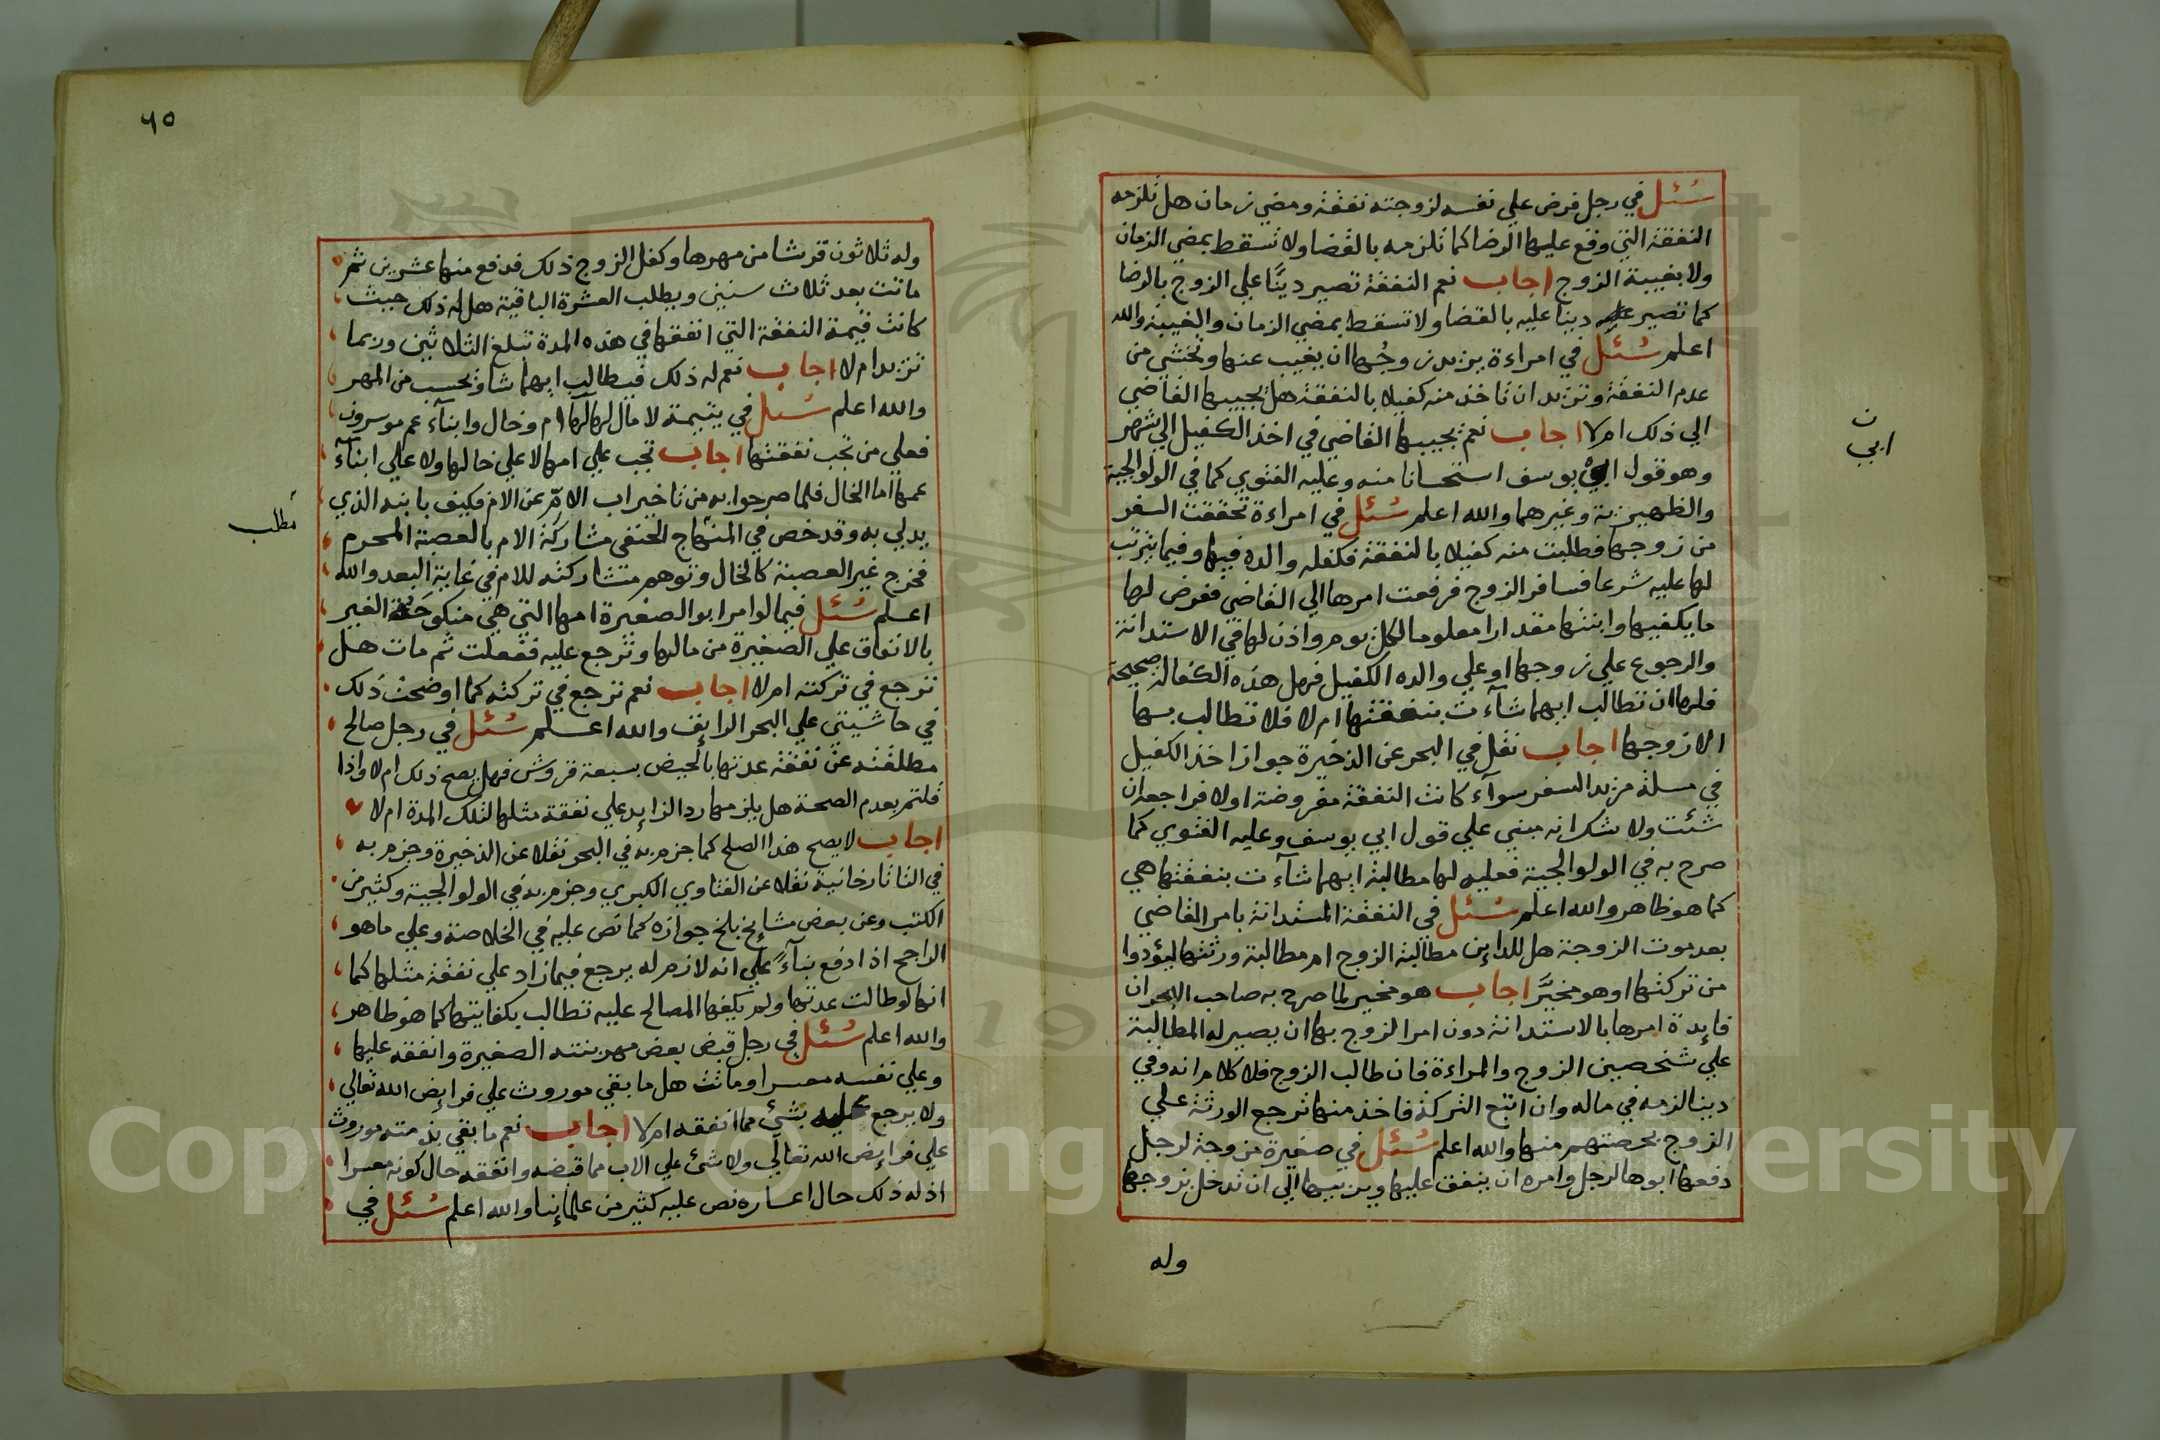 سئل في رجل فرض علي نفسه لزوجته نفقة ومضي زمان هل تلزمه
النفقة التي وقع عليها الرضا كما تلزمه بالقضا ولا تسقط بمضي الزمان
ولا بغيبة الزوج اجاب نعم النفقة تصير دينا علي الزوج بالرضا
كما تصير عليه دينا عليه بالقضا ولا تسقط بمضي الزمان والغيبة والله
اعلم سئل في امراءة يريد زوجها ان يغيب عنها وتخشي من
عدم النفقة وتريد ان تاخذ منه كفيلا بالنفقة هل يجيبها القاضي
الي ذلك ام لا اجاب نعم يجيبها القاضي في اخذ الكفيل الي شهر
وهو قول ابي يوسف استحسانا منه وعليه الفتوي كما في الولوالجية
والظهيرية وغيرهما والله اعلم سئل في امراءة تحققت السفر
من زوجها فطلبت منه كفيلا بالنفقة فكفله والده فيها وفيما يترتب
لها عليه شرعا فسافر الزوج فرفعت امرها الي القاضي ففرض لها
ما يكفيها وابنتها مقدارا معلوما لكل يوم واذن لها في الاستدانة
والرجوع علي زوجها او علي والده الكفيل فهل هذه الكفالة صحيحة
فلها ان تطالب ايهما شاءت بنفقتها ام لا فلا تطالب بها
الا زوجها اجاب نقل في البحر عن الذخيرة جواز اخذ الكفيل
في مسلة مريد السفر سوآء كانت النفقة مفروضة اولا فراجعه ان
شئت ولا شك انه مبني علي قول ابي يوسف وعليه الفتوي كما
صرح به في الولوالجية فعليه لها مطالبة ايهما شآءت بنفقتها هي
كما هو ظاهر والله اعلم سئل في النفقة المستدانة بامر القاضي
بعد موت الزوجة هل للداين مطالبة الزوج ام مطالبة ورثتها ليؤدوا
من تركتها او هو مخيَّر اجاب هو مخير لما صرح به صاحب البحر ان
فايدة امرها بالاستدانة دون امر الزوج بها ان يصير له المطالبة
علي شخصين الزوج والمراءة فان طالب الزوج فلا كلام انه وفي
دينا لزمه في ماله وان اتبع التركة فاخذ منها ترجع الورثة علي
الزوج بحصتهم منها والله اعلم سئل في صغيرة مزوجة لرجل
دفعها ابوها لرجل وامره ان ينفق عليها ويربيها الي ان تدخل بزوجها
وله
ن
ابي
٦٥
وله ثلاثون قرشا من مهرها وكفل الزوج ذلك فدفع منها عشرين ثم
ماتت بعد ثلاث سنين ويطلب العشرة الباقية هل له ذلك حيث
كانت قيمة النفقة التي انفقها في هذه المدة تبلغ الثلاثين وربما
تزيد ام لا اجاب نعم له ذلك فيطالب ايهما شاء ويحسب من المهر
والله اعلم سئل في يتيمة لا مال لها لها ام وخال وابنآء عم موسرون
فعلي من تجب نفقتها اجاب تجب علي امها لا علي خالها ولا علي ابنآء
عمها اما الخال فلما صرحوا به من تاخير اب الام عن الام فكيف بابنه الذي
يدلي به وقد خص في المنهاج الحنفي مشاركة الام بالعصبة المحرم
فخرج غير العصبة كالخال وتوهم مشاركته للام في غاية البعد والله
اعلم سئل فيما لو امر ابو الصغيرة امها التي هي منكوحة الغير
بالانفاق علي الصغيرة من مالها وترجع عليه ففعلت ثم مات هل
ترجع في تركته ام لا اجاب نعم ترجع في تركته كما اوضحت ذلك
في حاشيتي علي البحر الرايق والله اعلم سئل في رجل صالح
مطلقته عن نفقة عدتها بالحيض بسبعة قروش فهل يصح ذلك ام لا واذا
قلتم بعدم الصحة هل يلزمها رد الزايد علي نفقة مثلها لتلك المدة ام لا
اجاب لا يصح هذا الصلح كما جزم به في البحر نقلا عن الذخيرة وجزم به
في التاتارخانية نقلا عن الفتاوي الكبري وجزم به في الولوالجية وكثير من
الكتب وعن بعض مشايخ بلخ جوازه كما نص عليه في الخلاصة وعلي ما هو
الراجح اذا دفع بنآءً علي انه لازم له يرجع فيما زاد علي نفقة مثلها كما
انها لو طالت عدتها ولم يكفها المصالح عليه تطالب بكفايتها كما هو ظاهر
والله اعلم سئل في رجل قبض بعض مهر بنته الصغيرة وانفقه عليها
وعلي نفسه معسرا وماتت هل ما بقي موروث علي فرايض الله تعالي
ولا يرجع عليه بشئ مما انفقه ام لا اجاب نعم ما بقي بذمته موروث
علي فرايض الله تعالي ولا شئ علي الاب مما قبضه وانفقه حال كونه معسرا
اذ له ذلك حال اعساره نص عليه كثير من علمائنا والله اعلم سئل في
مطلب
Copyright © King Saud University